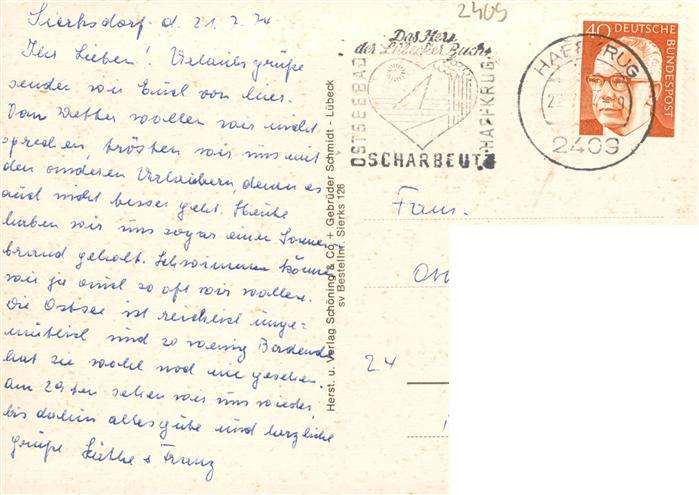 Sierksdorf d. 21.7.74
Ihr Lieben! Urlaubsgrüße
senden wir Euch von hier.
Vom Wetter wollen wir nicht
sprechen, trösten wir uns mit
den anderen Urlaubern, denen es
auch nicht besser geht. Heute
haben wir uns sogar einen Sonnen
brand geholt. Schwimmen können
wir ja auch so oft wir wollen.
Die Ostsee ist reichlich unge=
mütlich und so wenig Badende
hat sie wohl noch nie gesehen.
am 29ten sehen wir uns wieder,
bis dahin alles gute und herzliche
grüße Käthe + Franz
Herst. u. Verlag Schöning & Co + Gebrüder Schmidt - Lübeck
sv Bestellnr. Sierks 126
2409
Das Herz
der Lübecker Bucht
OSTSEEBAD
HAFFKRUG
SCHARBEUTZ
HAFFKRUG
2409
40 DEUTSCHE
BUNDESPOST
Fam.
24